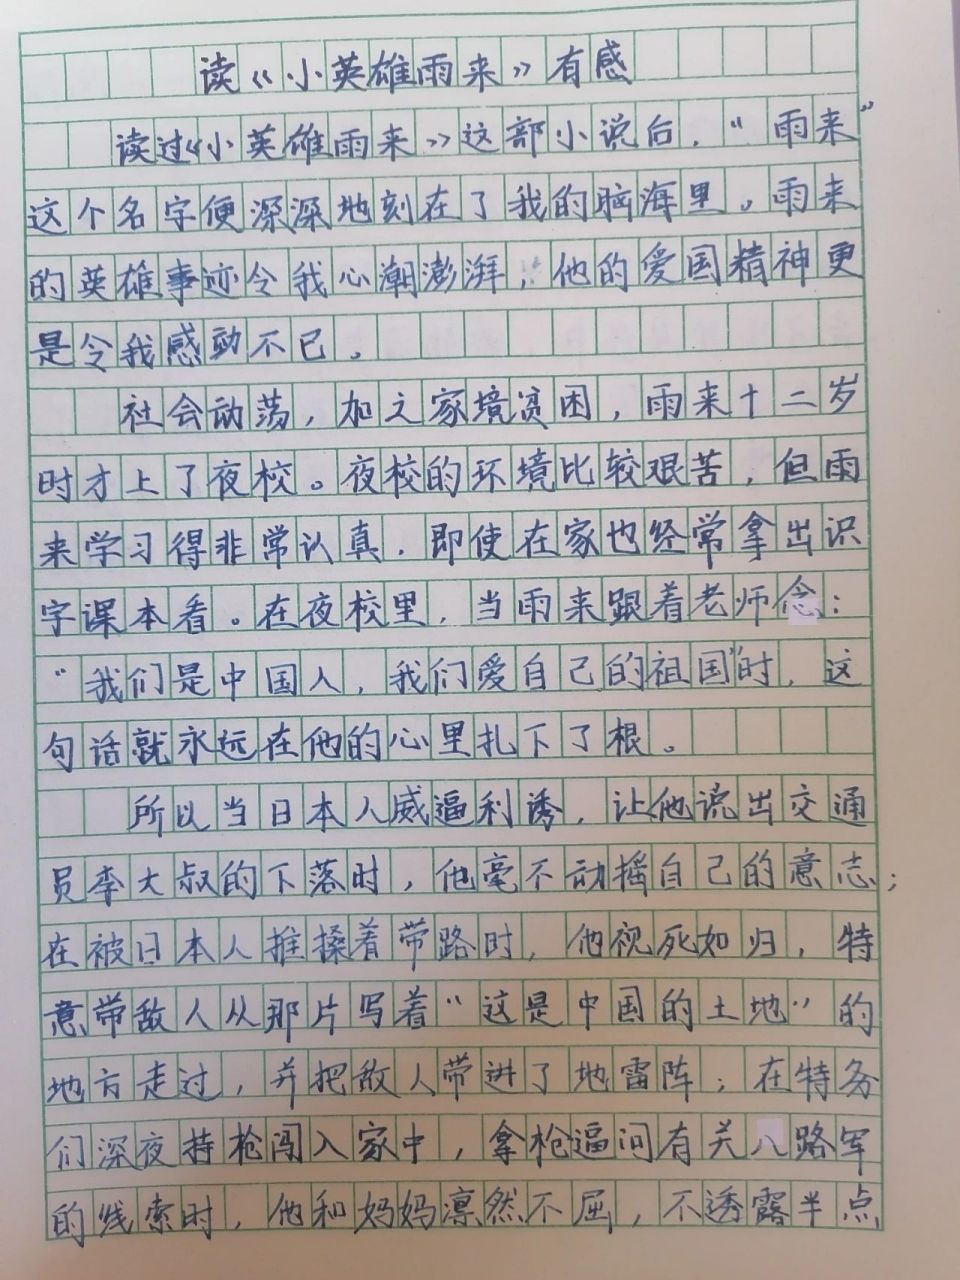 读《小英雄雨来》有感
读过《小英雄雨来》这部小说后，“雨来”
这个名字便深深地刻在了我的脑海里。雨来
的英雄事迹令我心潮澎湃，他的爱国精神更
是令我感动不已。
社会动荡，加之家境贫困，雨来十二岁
时才上了夜校。夜校的环境比较艰苦，但雨
来学习得非常认真，即使在家也经常拿出识
字课本看。在夜校里，当雨来跟着老师念：
“我们是中国人，我们爱自己的祖国”时，这
句话就永远在他的心里扎下了根。
所以当日本人威逼利诱，让他说出交通
员李大叔的下落时，他毫不动摇自己的意志；
在被日本人推搡着带路时，他视死如归，特
意带敌人从那片写着“这是中国的土地”的
地方走过，并把敌人带进了地雷阵；在特务
们深夜持枪闯入家中，拿枪逼问有关八路军
的线索时，他和妈妈凛然不屈，不透露半点